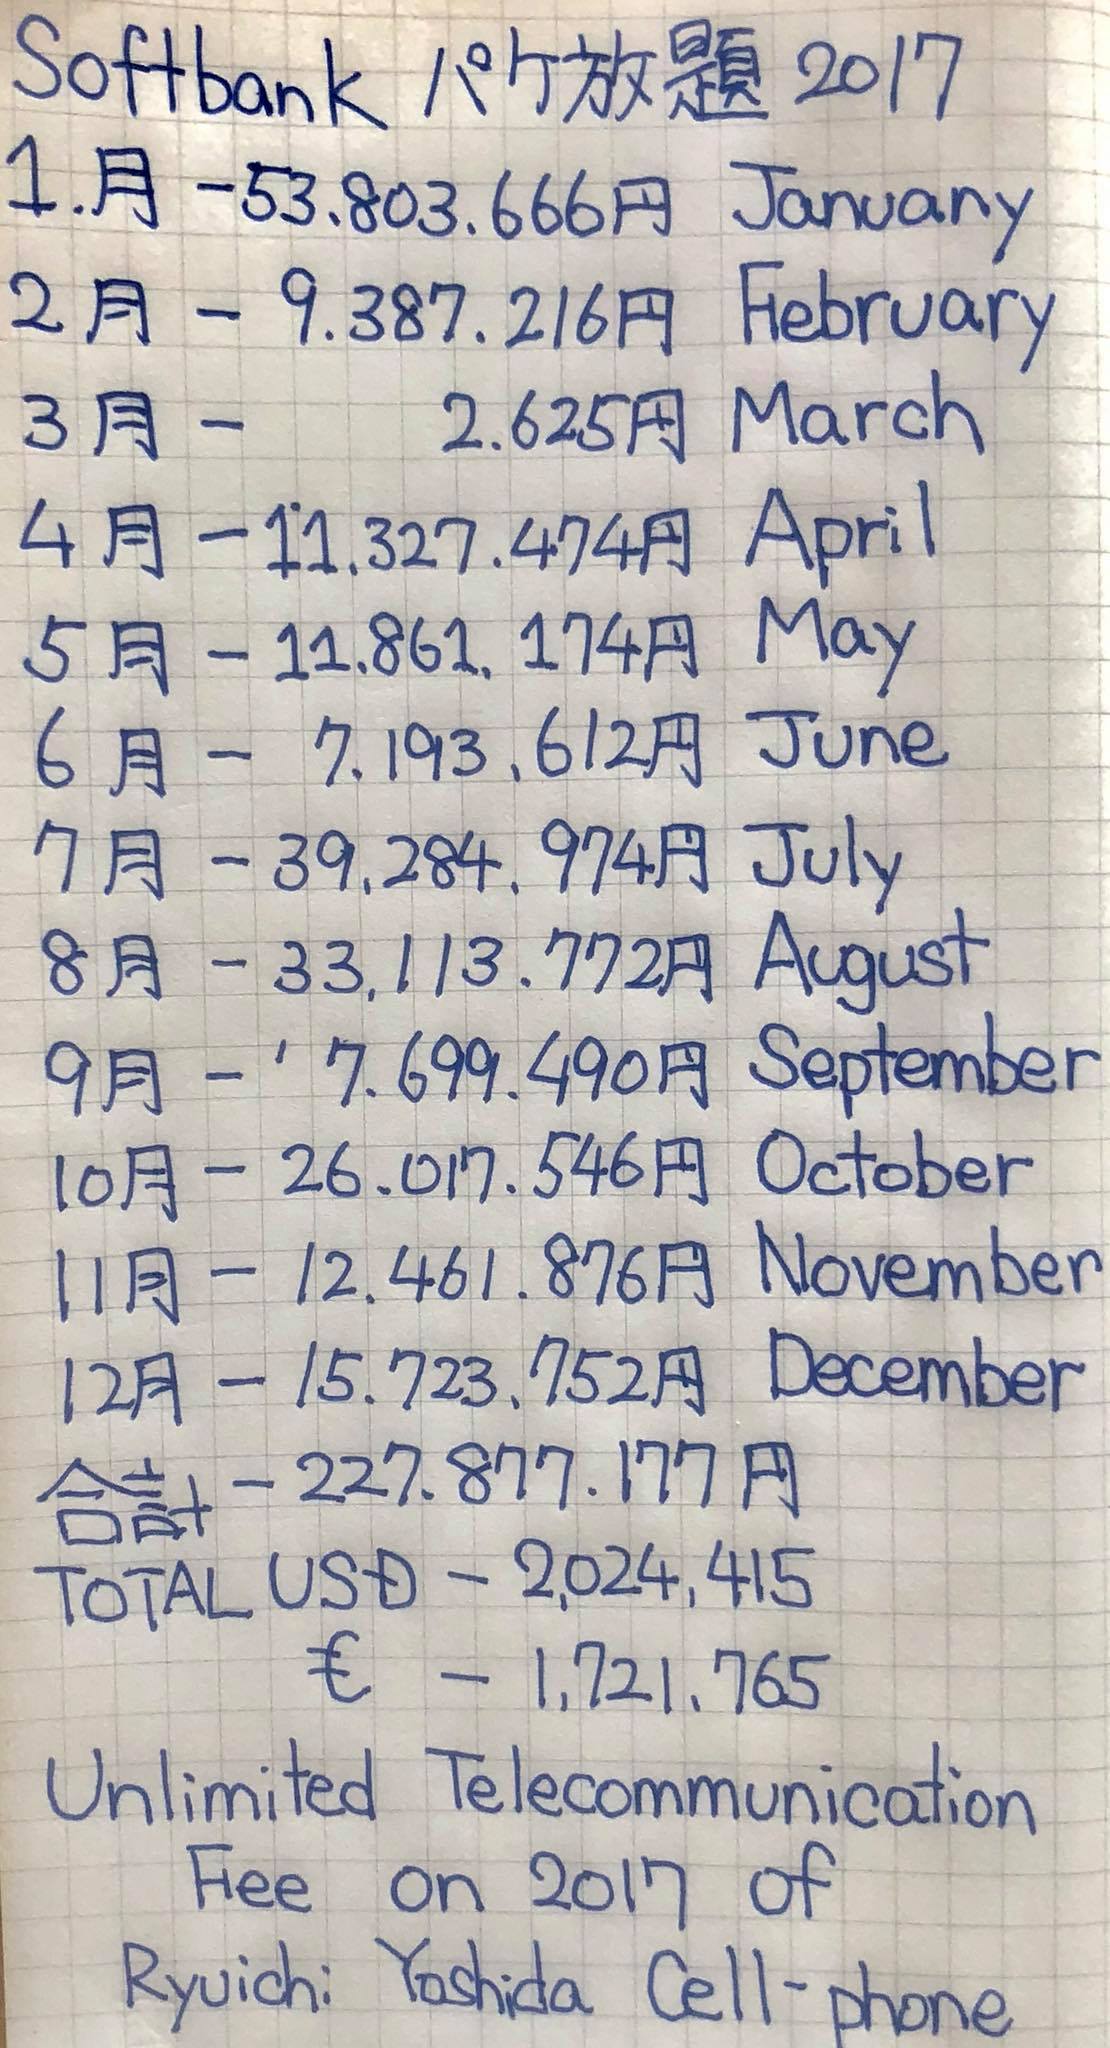 Softbank パケ放題 2017
1.月 -53.803.666円 January
2月 - 9.387.216円 February
3月 - 2.625円 March
4月 - 11.327.474円 April
5月 - 11.861.174円 May
6月 - 7.193.612円 June
7月 - 39.284.974円 July
8月 - 33.113.772円 August
9月 - ' 7.699.490円 September
10月 - 26.017.546円 October
11月 - 12.461.876円 November
12月 - 15.723.752円 December
合計 - 227.877.177円
TOTAL USD - 2,024,415
€ - 1,721,765
Unlimited Telecommunication
Fee on 2017 of
Ryuichi Yoshida Cell-phone